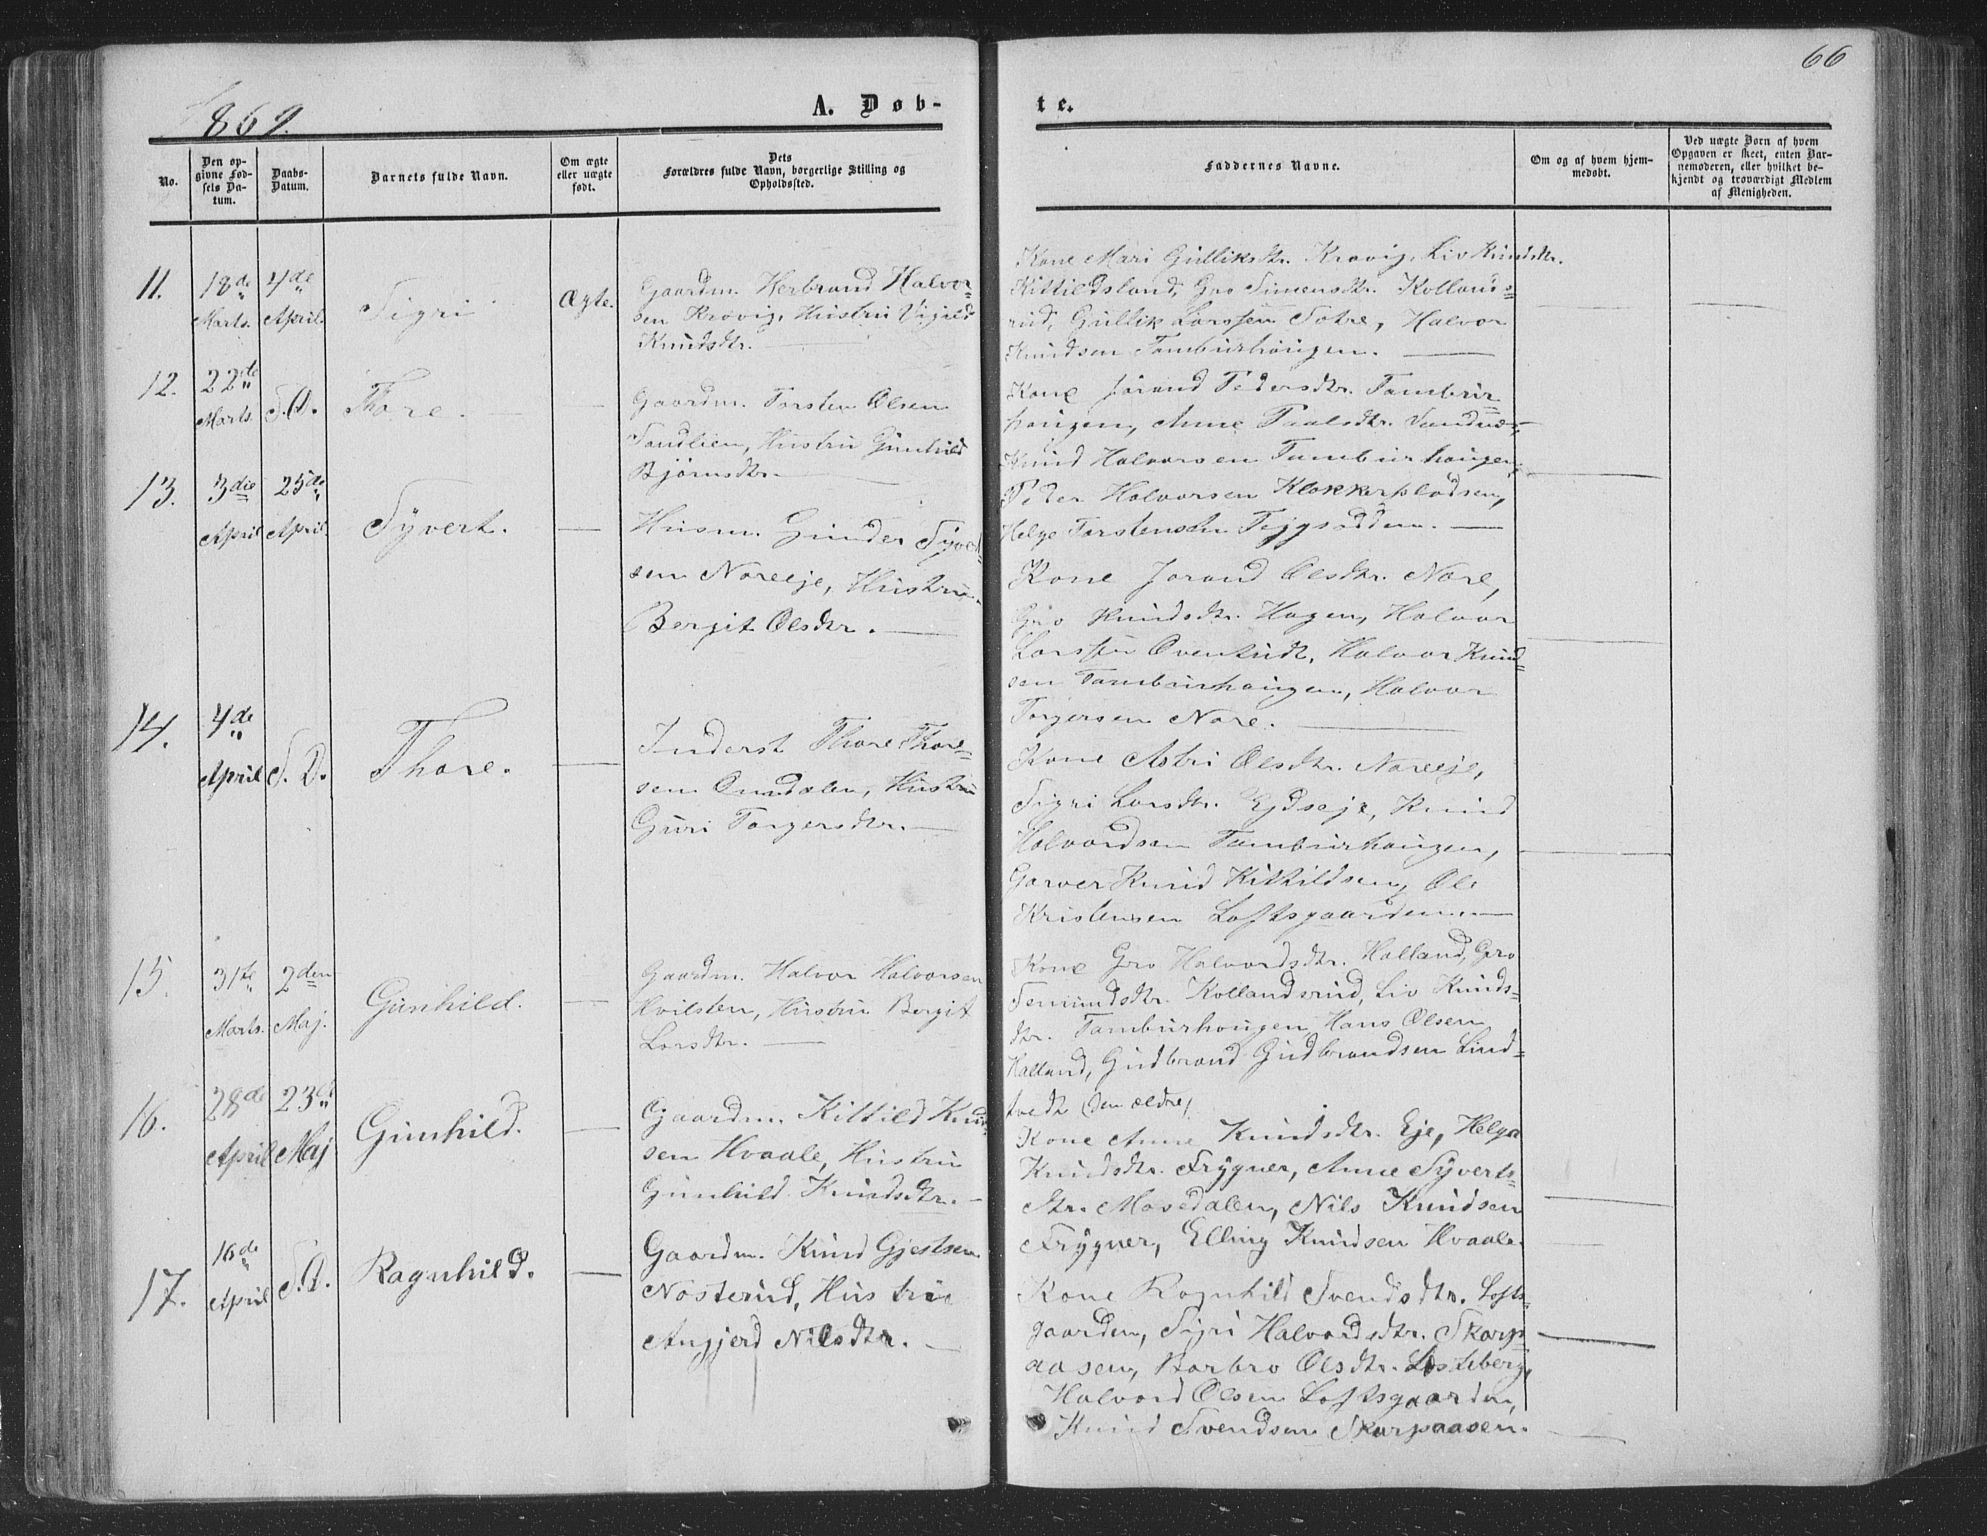 66
1869.
A. Døb-
te.
No.
Den op-
givne Fød-
sels Da-
tum.
Daabs-
Datum.
Barnets fulde Navn.
Om ægte
eller uægte
født.
Dets
Forældres fulde Navn, borgerlige Stilling og
Opholdssted.
Faddernes Navne.
Om og af hvem hjem-
medøbt.
Ved uægte Børn af hvem
Opgaven er skeet, enten Bar-
nemoderen, eller hvilket be-
kjendt og troværdigt Medlem
af Menigheden.
11.
18de
Marts.
4de
April.
Sigri
Ægte.
Gaardm. Herbrand Halvor-
sen Kravig, Hustru Vigild
Knudsdtr.
Kone Mari Gulliksdtr. Kravig, Liv Knudsdtr.
Kittildsland, Gro Simensdtr. Kollands-
rud, Gullik Larssen Sotre, Halvor
Knudsen Tamburhaugen.
12.
22de
Marts.
S. D.
Thore.
Gaardm. Torsten Olsen
Sandlien, Hustru Gunhild
Bjørnsdtr.
Kone Jorand Pedersdtr. Tambur-
haugen, Anne Paalsdtr. Sandnes,
Knud Halvorsen Tamburhaugen,
Peder Halvorsen Klokkerpladsen,
Helge Torstensen
13.
3die
April
25de
April.
Syvert.
Husm. Gunder Syvert-
sen Noreeje, Hustru
Bergit Olsdtr.
Kone Jorand Olsdtr. Nore,
Gro Knudsdtr. Hagen, Halvor
Larssen Halvor Knud-
sen Tamburhaugen, Halvor
Torgersen Nore.
14.
4de
April
S. D.
Thore.
Inderst Thore Thore-
sen Hustru
Guri Torgersdtr.
Kone Astri Olsdtr. Noreeje,
Sigri Larsdtr. Ejdseje, Knud
Halvordsen Tamburhaugen,
Garver Knud Kittildsen, Ole
Kristensen Loftsgaarden.
15.
31te
Marts.
2den
Maj.
Gunhild.
Gaardm. Halvor Halvorsen
Hvilsten, Hustru Bergit
Larsdtr.
Kone Gro Halvordsdtr. Halland, Gro
Semundsdtr. Kollandsrud, Liv Knuds-
dtr. Tamburhaugen, Hans Olsen
Halland, Gudbrand Gudbrandsen Lind-
tvedt (den ældre)
16.
28de
April
23de
Maj
Gunhild.
Gaardm. Kittild Knud-
sen Hvaale, Hustru
Gunhild Knudsdtr.
Kone Anne Knudsdtr. Eje, Helga
Knudsdtr. Frygner, Anne Syverts-
dtr. Mosedalen, Nils Knudsen
Frygner, Elling Knudsen Hvaale.
17.
16de
April
S. D.
Ragnhild.
Gaardm. Knud Gjestsen
Nosterud, Hustru
Angjerd Nilsdtr.
Kone Ragnhild Svendsdtr. Lofts-
gaarden, Sigri Halvordsdtr. Skarp-
aasen, Barbro Olsdtr.
Halvord Olsen Loftsgaarden,
Knud Svendsen Skarpaasen.